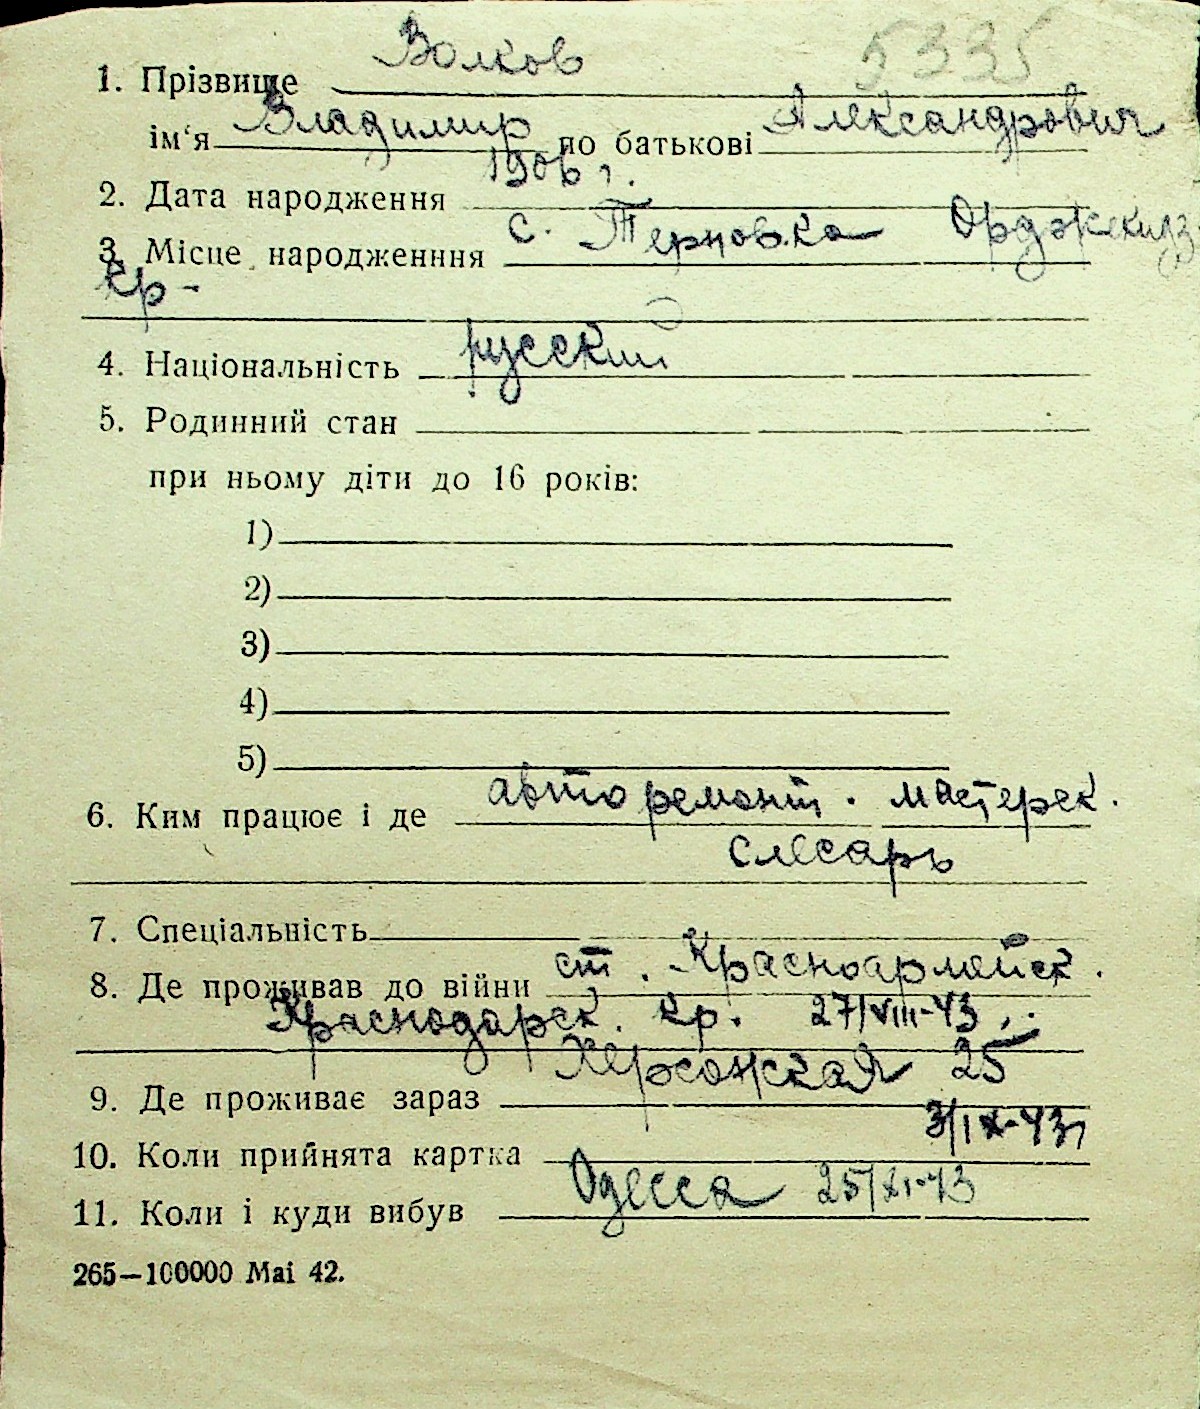 5335
1. Прізвище Волков
ім‘я Владимир по батькові Александрович
2. Дата народження 1906 г.
3. Місце народженння с. Терновка Орджекидз
кр-
4. Національність русский
5. Родинний стан
при ньому діти до 16 років:
1)
2)
3)
4)
5)
6. Ким працює і де авторемонт. мастерск.
слесарь
7. Спеціальність
8. Де проживав до війни ст. Красноармейск.
Краснодарск. кр. 27/VIII-43
9. Де проживає зараз Херсонская 25
10. Коли прийнята картка 3/IX-43
11. Коли і куди вибув Одесса 25/XI-43
265—100000 Mai 42.